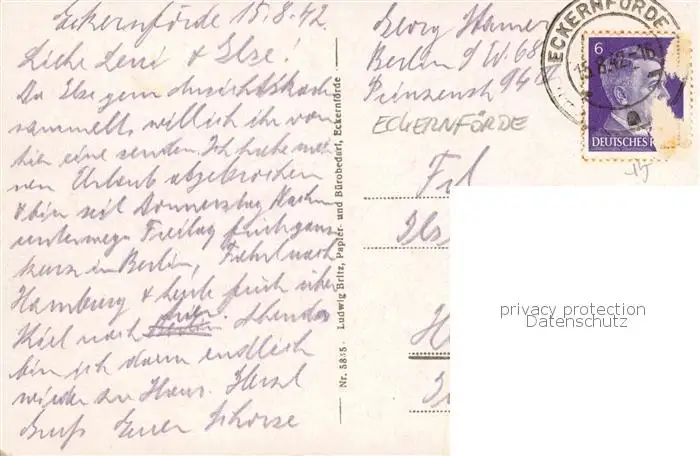 Eckernförde 15.8.42.
Liebe Leni & Else!
Da Else gern Ansichtskarten
sammelt, will ich ihr von
hier eine senden. Ich habe mei-
nen Urlaub abgebrochen
& bin seit Donnerstag Nachm
unterwegs Freitag früh ganz
kurz in Berlin, Fahrt nach
Hamburg & heute früh über
Kiel nach hier. Abends
bin ich dann endlich
wieder zu Haus. Herzl
Gruß Euer Schorse
Nr. 5835 - Ludwig Britz, Papier- und Bürobedarf, Eckernförde
Georg Hamer
Berlin SW 68
Prinzenstr 94
ECKERNFÖRDE
ECKERNFÖRDE
15.8.42.-16
6
DEUTSCHES R
Frl
Ils
H
privacy protection
Datenschutz